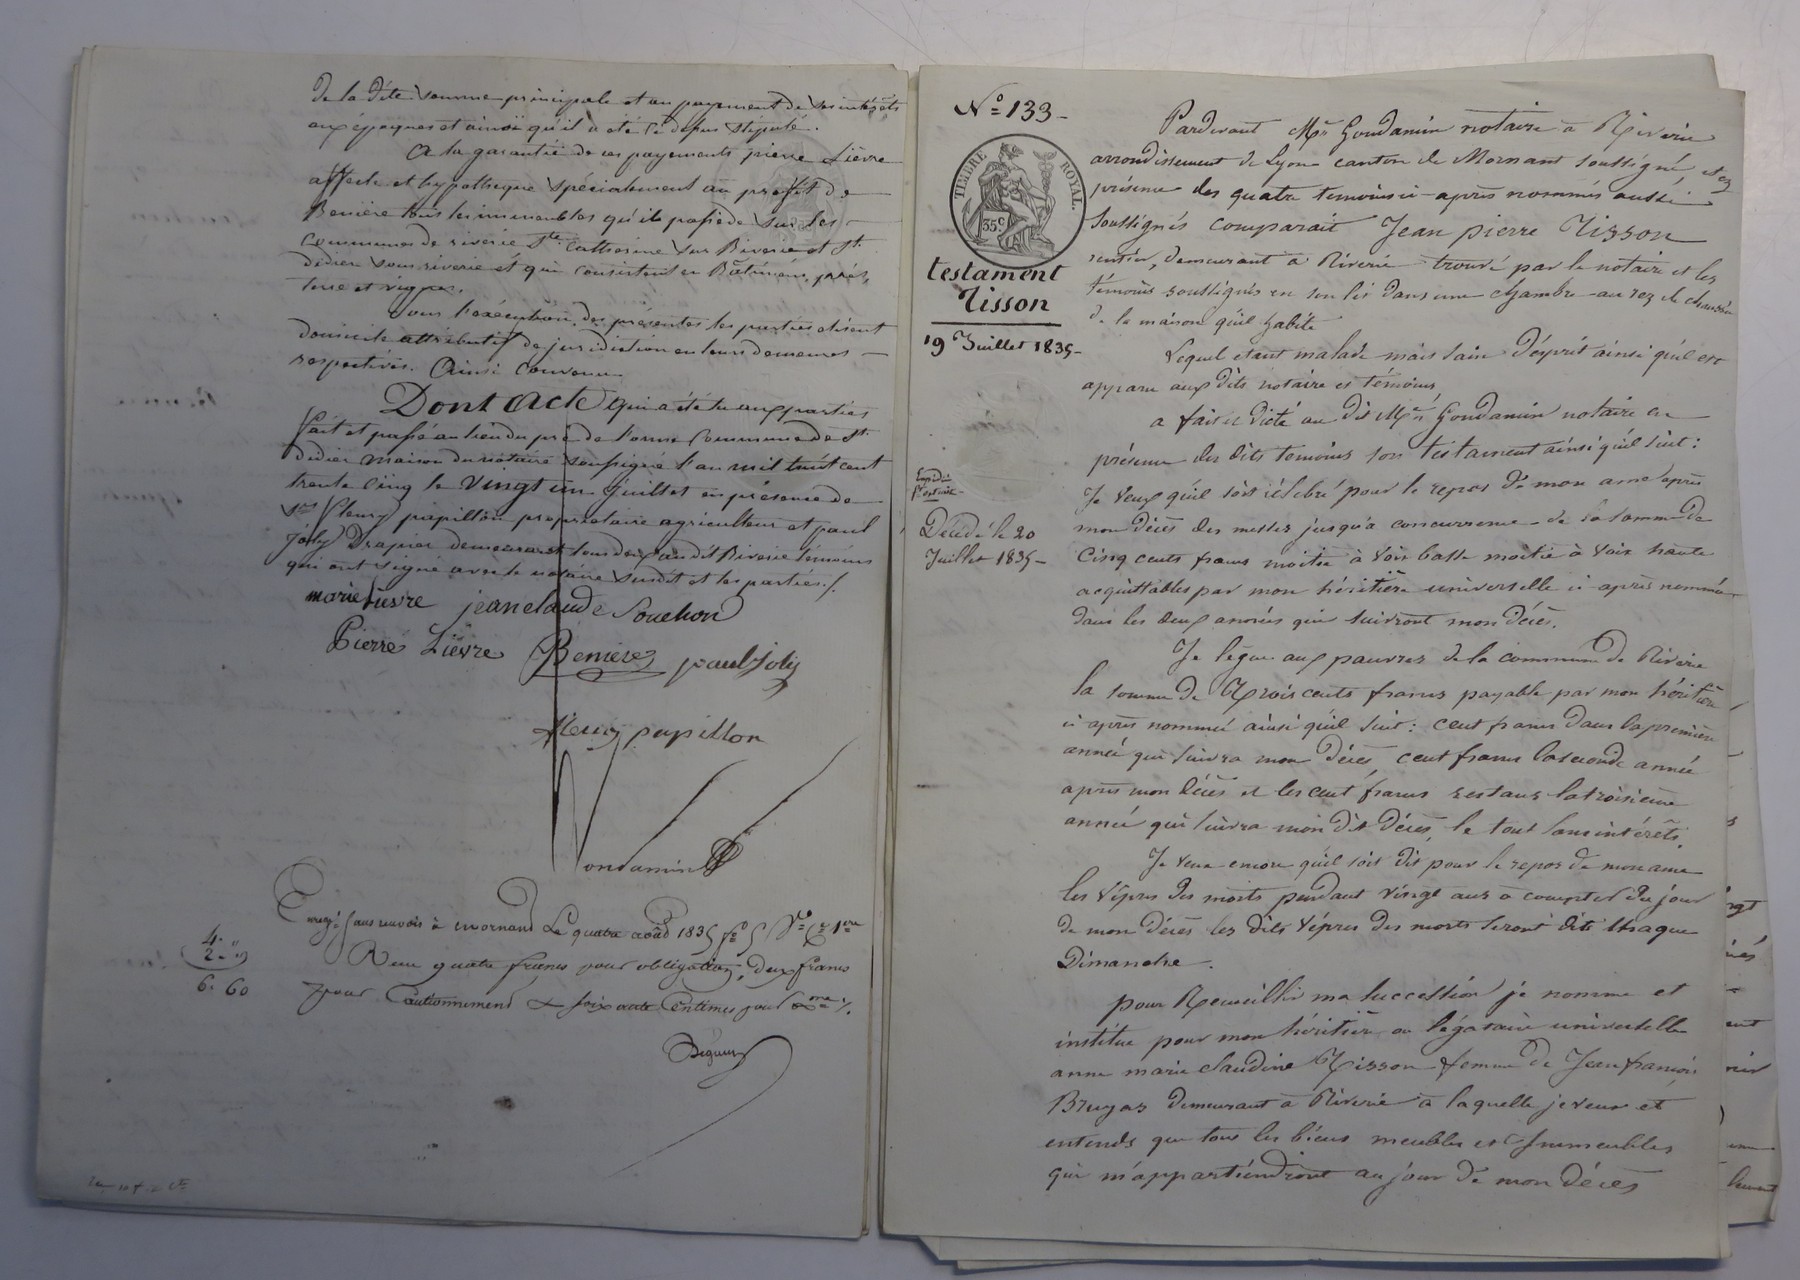 de la dite somme principale et au payement de ses intérêts
aux époques et ainsi qu'il a été ci depus stipulé.
A la garantie de ces payements pierre Lièvre
affecte et hypothèque spécialement au profit de
Benière tous les immeubles qu'il possède sur les
communes de riverie Ste. Catherine sur Riverie et St.
didier sous riverie et qui consistent en Bâtimens, prés,
terre et vignes.
Pour l'exécution des présentes les parties élisent
domicile attributif de juridiction en leurs demeures
respectives. Ainsi convenu
Dont Acte qui a été lu aux parties
fait et passé au lieu du pré de l'orme Commune de St.
didier maison du notaire soussigné l'an mil huit cent
trente cinq le vingt un juillet en présence de
Srs fleury papillon propriétaire agriculteur et paul
joly Drapier demeurant tous deux au dit Riverie témoins
qui ont signé avec le notaire susdit et les parties./.
marie Lievre jean claude Souchon
Pierre Lièvre Beniere paul Joly
fleury papillon
Condamin
Enregé sans renvois à mornand Le quatre août 1835 fo 5 Vo Ce 1ere
Reçu quatre francs pour obligation, deux francs
pour Cautionnement & soixante Centimes pour Dme /.
4. "
2. "
6. 60
No 133
TIMBRE ROYAL.
35c
testament
Tisson
19 Juillet 1835
Expédié
Décédé le 20
Juillet 1835
Pardevant Me Condamin notaire à Riverie
arrondissement de Lyon canton de Mornant soussigné et en
présence des quatre temoins ci-après nommés aussi
soussignés comparait Jean pierre Tisson
rentier, demeurant à Riverie trouvé par le notaire et les
témoins soussignés en son lit dans une chambre au rez de chaussée
de la maison qu'il habite
Lequel etant malade mais sain d'esprit ainsi qu'il est
apparu aux dits notaire et témoins
a fait et dicté au dit Me Condamin notaire en
présence des dits temoins son testament ainsi qu'il suit:
Je veux qu'il soit célébré pour le repos de mon ame après
mon décès des messes jusqu'a concurrence de la somme de
Cinq cents francs moitié à voix basse moitié à voix haute
acquittables par mon héritière universelle ci après nommée
dans les deux années qui suivront mon décès.
Je lègue aux pauvres de la commune de Riverie
la somme de Trois cents francs payable par mon héritière
ci après nommée ainsi qu'il suit: cent francs dans la première
année qui suivra mon décès, cent francs la seconde année
après mon décès et les cent francs restans la troisieme
année qui suivra mon dit décès, le tout sans intérêts.
Je veux encore qu'il soit dit pour le repos de mon ame
les vépres des morts pendant vingt ans à compter du jour
de mon décès les dits vépres des morts seront dits chaque
Dimanche.
pour Recueillir ma succession je nomme et
institue pour mon héritière ou légataire universelle
anne marie claudine Tisson femme de Jean françois
Bruyas demeurant à Riverie à laquelle je veux et
entends que tous les biens meubles et Immeubles
qui m'appartiendront au jour de mon décès